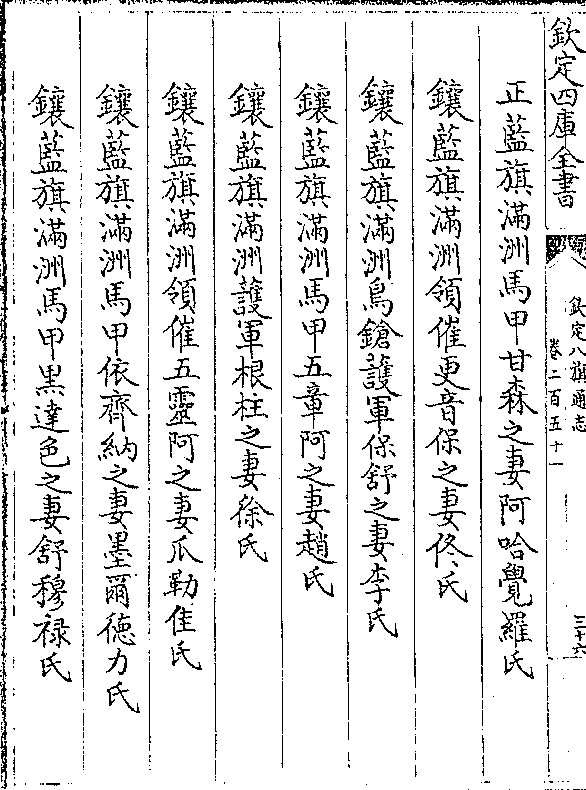 欽定四庫全書
欽定八旗通志
卷二百五十一
三十六
正藍旗滿洲馬甲甘森之妻阿哈覺羅氏
鑲藍旗滿洲領催更音保之妻佟氏
鑲藍旗滿洲鳥鎗護軍保舒之妻李氏
鑲藍旗滿洲馬甲五章阿之妻趙氏
鑲藍旗滿洲護軍根柱之妻徐氏
鑲藍旗滿洲領催五靈阿之妻瓜勒佳氏
鑲藍旗滿洲馬甲依齊納之妻墨爾德力氏
鑲藍旗滿洲馬甲黒達色之妻舒穆禄氏